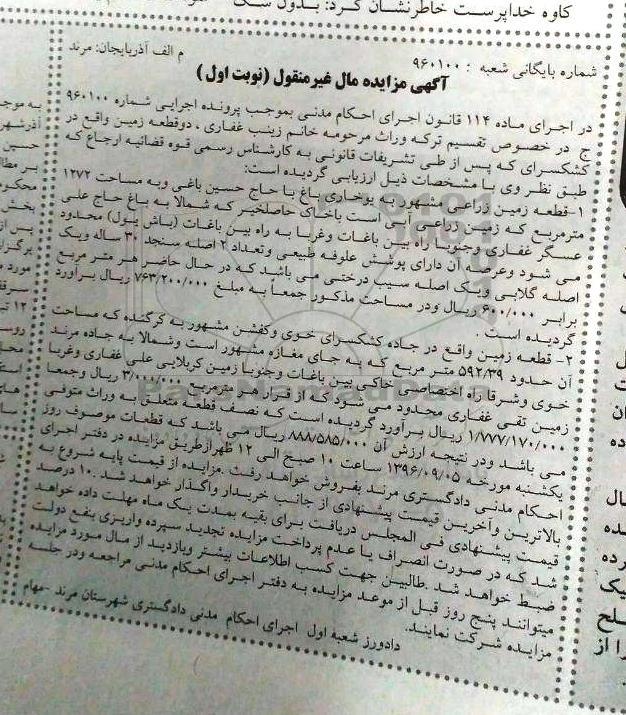 کاوه خداپرست خاطرنشان کرد: بدون شک
شماره بایگانی شعبه : ۹۶۰۱۰۰
م الف آذربایجان: مرند
آگهی مزایده مال غیرمنقول (نوبت اول)
در اجرای ماده ۱۱۴ قانون اجرای احکام مدنی بموجب پرونده اجرایی شماره ۹۶۰۱۰۰
ج در خصوص تقسیم ترکه وراث مرحومه خانم زینب غفاری ، دوقطعه زمین واقع در
کشکسرای که پس از طی تشریفات قانونی به کارشناس رسمی قوه قضائیه ارجاع که
طبق نظر وی با مشخصات ذیل ارزیابی گردیده است:
۱-قطعه زمین زراعی مشهور به یوخاری باغ یا حاج حسین باغی وبه مساحت ۱۲۷۲
مترمربع که زمین زراعی آبی است باخاک حاصلخیز که شمالا به باغ حاج علی
عسگر غفاری وجنوبا راه بین باغات وغربا به راه بین باغات (باش یول) محدود
می شود وعرصه آن دارای پوشش علوفه طبیعی وتعداد ۲ اصله سنجد ۳۰ ساله ویک
اصله گلابی ویک اصله سیب درختی می باشد که در حال حاضر هر متر مربع
برابر ۶۰۰/۰۰۰ ریال ودر مساحت مذکور جمعاً به مبلغ ۷۶۳/۲۰۰/۰۰۰ ریال برآورد
گردیده است .
۲- قطعه زمین واقع در جاده کشکسرای خوی وکفشن مشهور به کرگنده که مساحت
آن حدود ۵۹۲/۳۹ متر مربع که به جای مغازه مشهور است وشمالا به جاده مرند
خوی وشرقا راه اختصاصی خاکی بین باغات وجنوبا زمین کربلایی علی غفاری وغربا
زمین تقی غفاری محدود می شود که از قرار هر مترمربع ۳/۰۰۰/۰۰۰ ریال وجمعا
۱/۷۷۷/۱۷۰/۰۰۰ ریال برآورد گردیده است که نصف قطعه متعلق به وراث متوفی
می باشد ودر نتیجه ارزش آن ۸۸۸/۵۸۵/۰۰۰ ریال می باشد که قطعات موصوف روز
یکشنبه مورخه ۱۳۹۶/۰۹/۰۵ ساعت ۱۰ صبح الی ۱۲ ظهرازطریق مزایده در دفتر اجرای
احکام مدنی دادگستری مرند بفروش خواهد رفت .مزایده از قیمت پایه شروع به
بالاترین وآخرین قیمت پیشنهادی از جانب خریدار واگذار خواهد شد .۱۰ درصد
قیمت پیشنهادی فی المجلس دریافت برای بقیه بمدت یک ماه مهلت داده خواهد
شد که در صورت انصراف یا عدم پرداخت مزایده تجدید سپرده واریزی بنفع دولت
ضبط خواهد شد .طالبین جهت کسب اطلاعات بیشتر وبازدید از مال مورد مزایده
میتوانند پنج روز قبل از موعد مزایده به دفتر اجرای احکام مدنی مراجعه ودر جلسه
مزایده شرکت نمایند.
دادورز شعبه اول اجرای احکام مدنی دادگستری شهرستان مرند -مهام